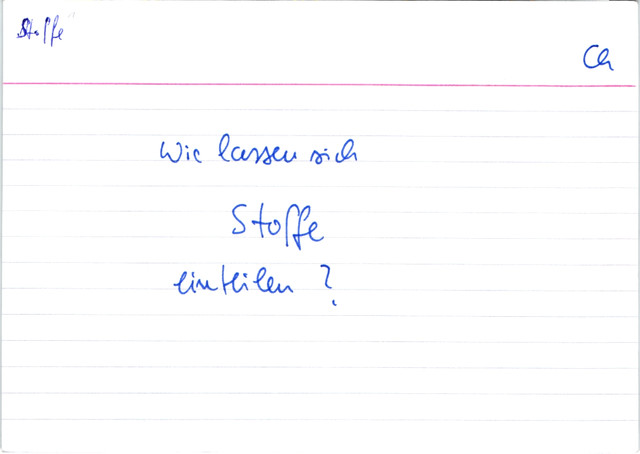 Stoffe
Ch
Wie lassen sich
Stoffe
einteilen?